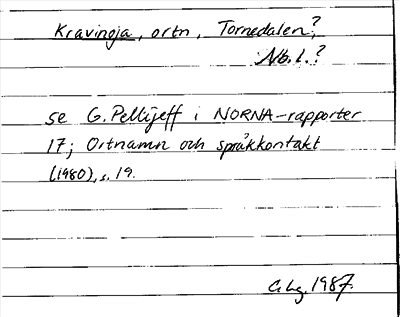 Kravinoja, ortn, Tornedalen?,
Nb. l.?
se G. Pellijeff i NORNA-rapporter
17; Ortnamn och språkkontakt
(1980), s. 19.
1987.